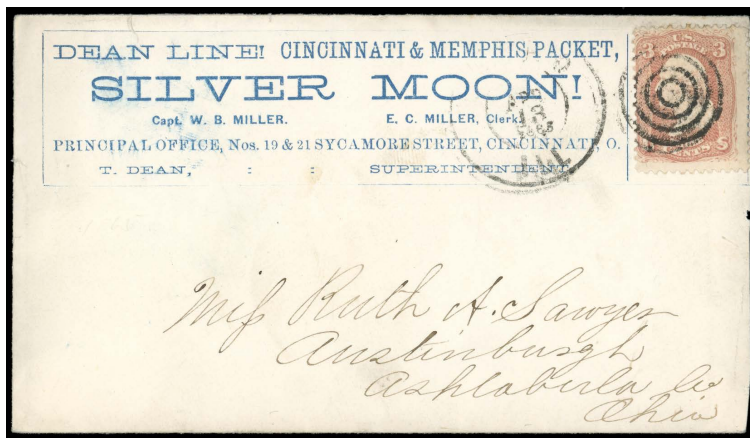 DEAN LINE! CINCINNATI & MEMPHIS PACKET,
SILVER MOON!
Capt. W. B. MILLER. E. C. MILLER, Clerk.
PRINCIPAL OFFICE, Nos. 19 & 21 SYCAMORE STREET, CINCINNATI, O.
T. DEAN, : : SUPERINTENDENT.
U.S.
3 POSTAGE 3
CENTS
ILL
Miss Ruth A. Sawyer
Austinburgh
Ashtabula Co
Ohio